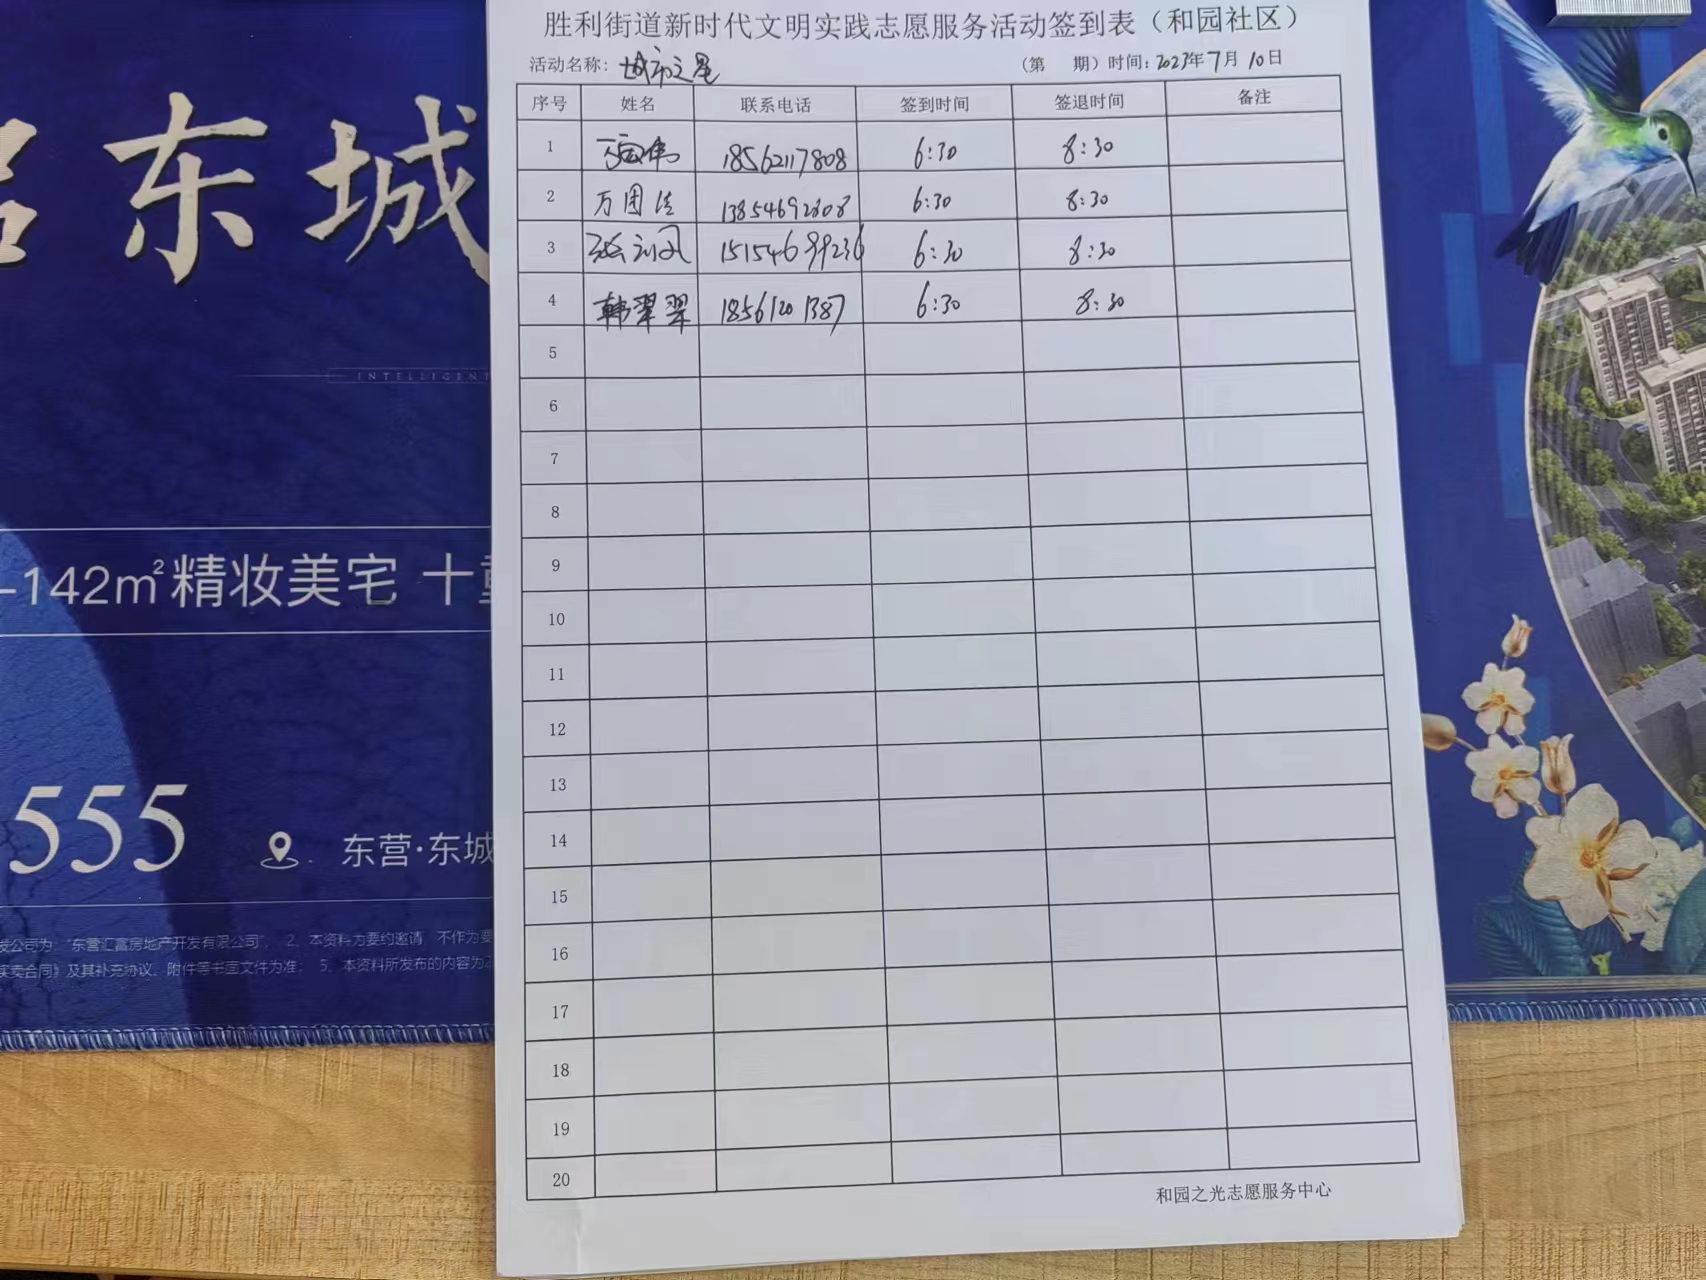 胜利街道新时代文明实践志愿服务活动签到表（和园社区）
活动名称：城市之星
（第 期）时间：2023年7月10日
序号 姓名 联系电话 签到时间 签退时间 备注
1 18562117808 6:30 8:30
2 万团结 13854692808 6:30 8:30
3 15154699236 6:30 8:30
4 韩翠翠 18561201387 6:30 8:30
5
6
7
8
9
10
11
12
13
14
15
16
17
18
19
20
和园之光志愿服务中心
东城
INTELLIGENT
-142㎡精妆美宅 十
555
东营·东城
发公司为：“东营汇富房地产开发有限公司”， 2、本资料为要约邀请 不作为要
买卖合同》及其补充协议、附件等书面文件为准； 5、本资料所发布的内容为2